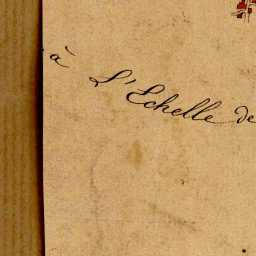 à L'Echelle de